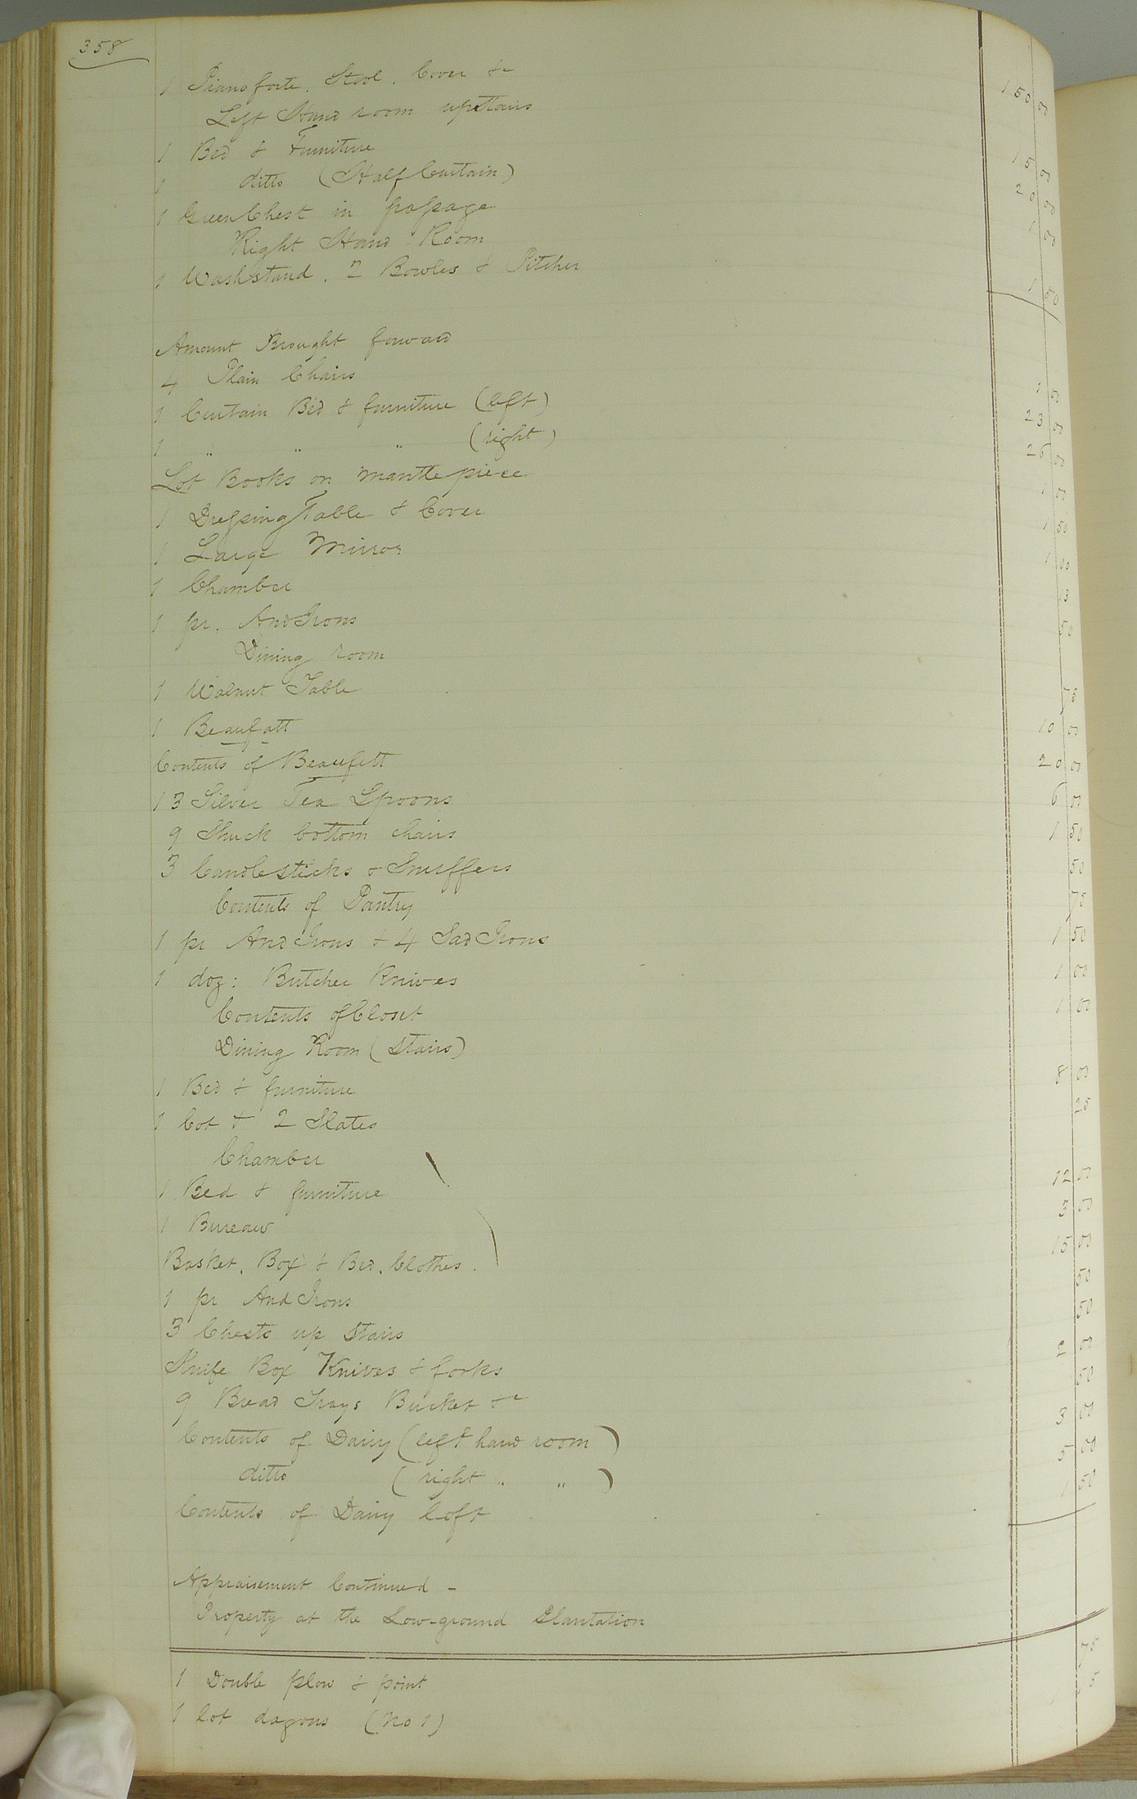 358
1 Piano forte, Stool, Cover &c 150 00
Left Hand room upstairs
1 Bed & Furniture 15 00
1 ditto (Half Curtain) 20 00
1 Green Chest in passage 1 00
Right Hand Room
1 Washstand, 2 Bowles & Pitcher 1 50
Amount Brought forward
4 Plain Chairs 1 00
1 Curtain Bed & furniture (left) 23 00
1 " " " (right) 25 00
Lot Books on Mantlepiece 1 00
1 Dressing Table & Cover 1 50
1 Large Mirror 1 00
1 Chamber 13
1 pr. And Irons 50
Dining room
1 Walnut Table 75
1 Beaufatt 10 00
Contents of Beaufett 20 00
13 Silver Tea Spoons 6 00
9 Shuck bottom chairs 1 50
3 Candlesticks & Snuffers 50
Contents of Pantry 75
1 pr And Irons & 4 Sad Irons 1 50
1 doz: Butcher Knives 1 00
Contents of Closet 1 00
Dining Room (Stairs)
1 Bed & furniture 8 00
1 Cot & 2 Slates 25
Chamber
1 Bed & furniture 12 00
1 Bureau 3 00
Basket, Box & Bed, Clothes 15 00
1 pr And Irons 50
3 Chests up Stairs 50
Knife Box Knives & forks 2 00
9 Bread Trays Bucket &c 50
Contents of Dairy (left hand room) 3 00
ditto (right " ") 5 00
Contents of Dairy loft 1 50
Appraisement Continued -
Property at the Low-ground Plantation
1 Double plow & point 75
1 lot (No 1) 5